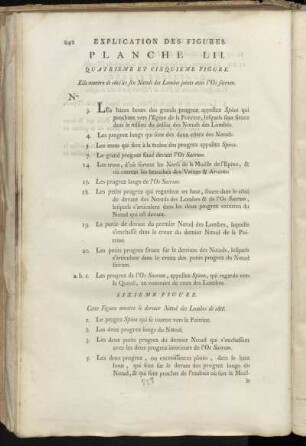 242 EXPLICATION DES FIGURES
PLANCHE LII.
QUATRIEME ET CINQUIEME FIGURE.
Elle montre de côté les six Nœuds des Lombes joints avec l'Os sacrum.
N°
3. Les bases hautes des grands progrez appellez Spina qui
penchent vers l'Epine de la Poitrine, lesquels sont situez
dans le milieu du des Nœuds des Lombes.
4. Les progrez longs qui sont des deux côtez des Nœuds.
5. Les trous qui sont à la traître des progrez appellez Spina.
7. Le grand progrez situé devant l'Os Sacrum.
14. Les trous, d'où sortent les Nerfs de la Moëlle de l'Epine, &
où entrent les branches des Veines & Arteres.
15. Les progrez longs de l'Os Sacrum.
18. Les petits progrez qui regardent en haut, situez dans le côté
de devant des Nœuds des Lombes & de l'Os Sacrum,
lesquels s'articulent dans les deux progrez externes du
Nœud qui est devant.
19. La partie de devant du premier Nœud des Lombes, laquelle
s'enchasse dans le creux du dernier Nœud de la Poi-
trine.
20. Les petits progrez situez sur le derriere des Nœuds, lesquels
s'articulent dans le creux des petits progrez du Nœud
suivant.
a.b.c. Les progrez de l'Os Sacrum, appellez Spina, qui regarde vers
la Queuë, au contraire de ceux des Lombes.
SIXIEME FIGURE.
Cette Figure montre le dernier Nœud des Lombes de côté.
1. Le progrez Spina qui se tourne vers la Poitrine.
2. Les deux progrez longs du Nœud.
3. Les deux petits progrez du dernier Nœud qui s'enchassent
avec les deux progrez interieurs de l'Os Sacrum.
5. Les deux progrez, ou excroissances plates, dans le haut
bout, qui sont sur le devant des progrez longs du
Nœud, & qui sont proches de l'endroit où sort la Moël-
le